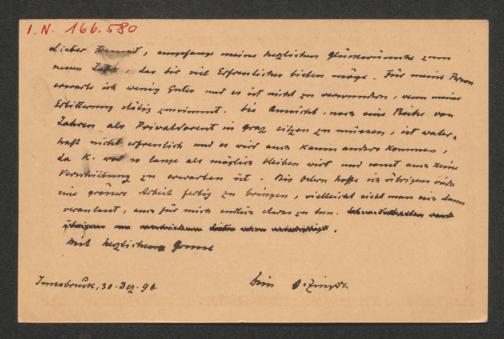 I.N. 166.580
Lieber Freund, empfange meine herzlichen Glückwünsche zum
neuen Jahr, das dir viel Erfreuliches bieten möge. Für meine Person
erwarte ich wenig Gutes und es ist nicht zu verwundern, wenn meine
Erbitterung stätig zunimmt. Die Aussicht, noch eine Reihe von
Jahren als Privatdocent in Graz sitzen zu müssen, ist wahr-
haft nicht erfreulich und es wird auch kaum anders kommen,
da K. wol so lange als möglich bleiben wird und sonst auch keine
Verschiebung zu erwarten ist. Bis Ostern hoffe ich übrigens
eine grössere Arbeit fertig zu bringen, vielleicht sieht man sich dann
veranlasst, auch für mich endlich etwas zu tun.
Mit herzlichem Grusse
Innsbruck, 30. Dez. 98. Dein